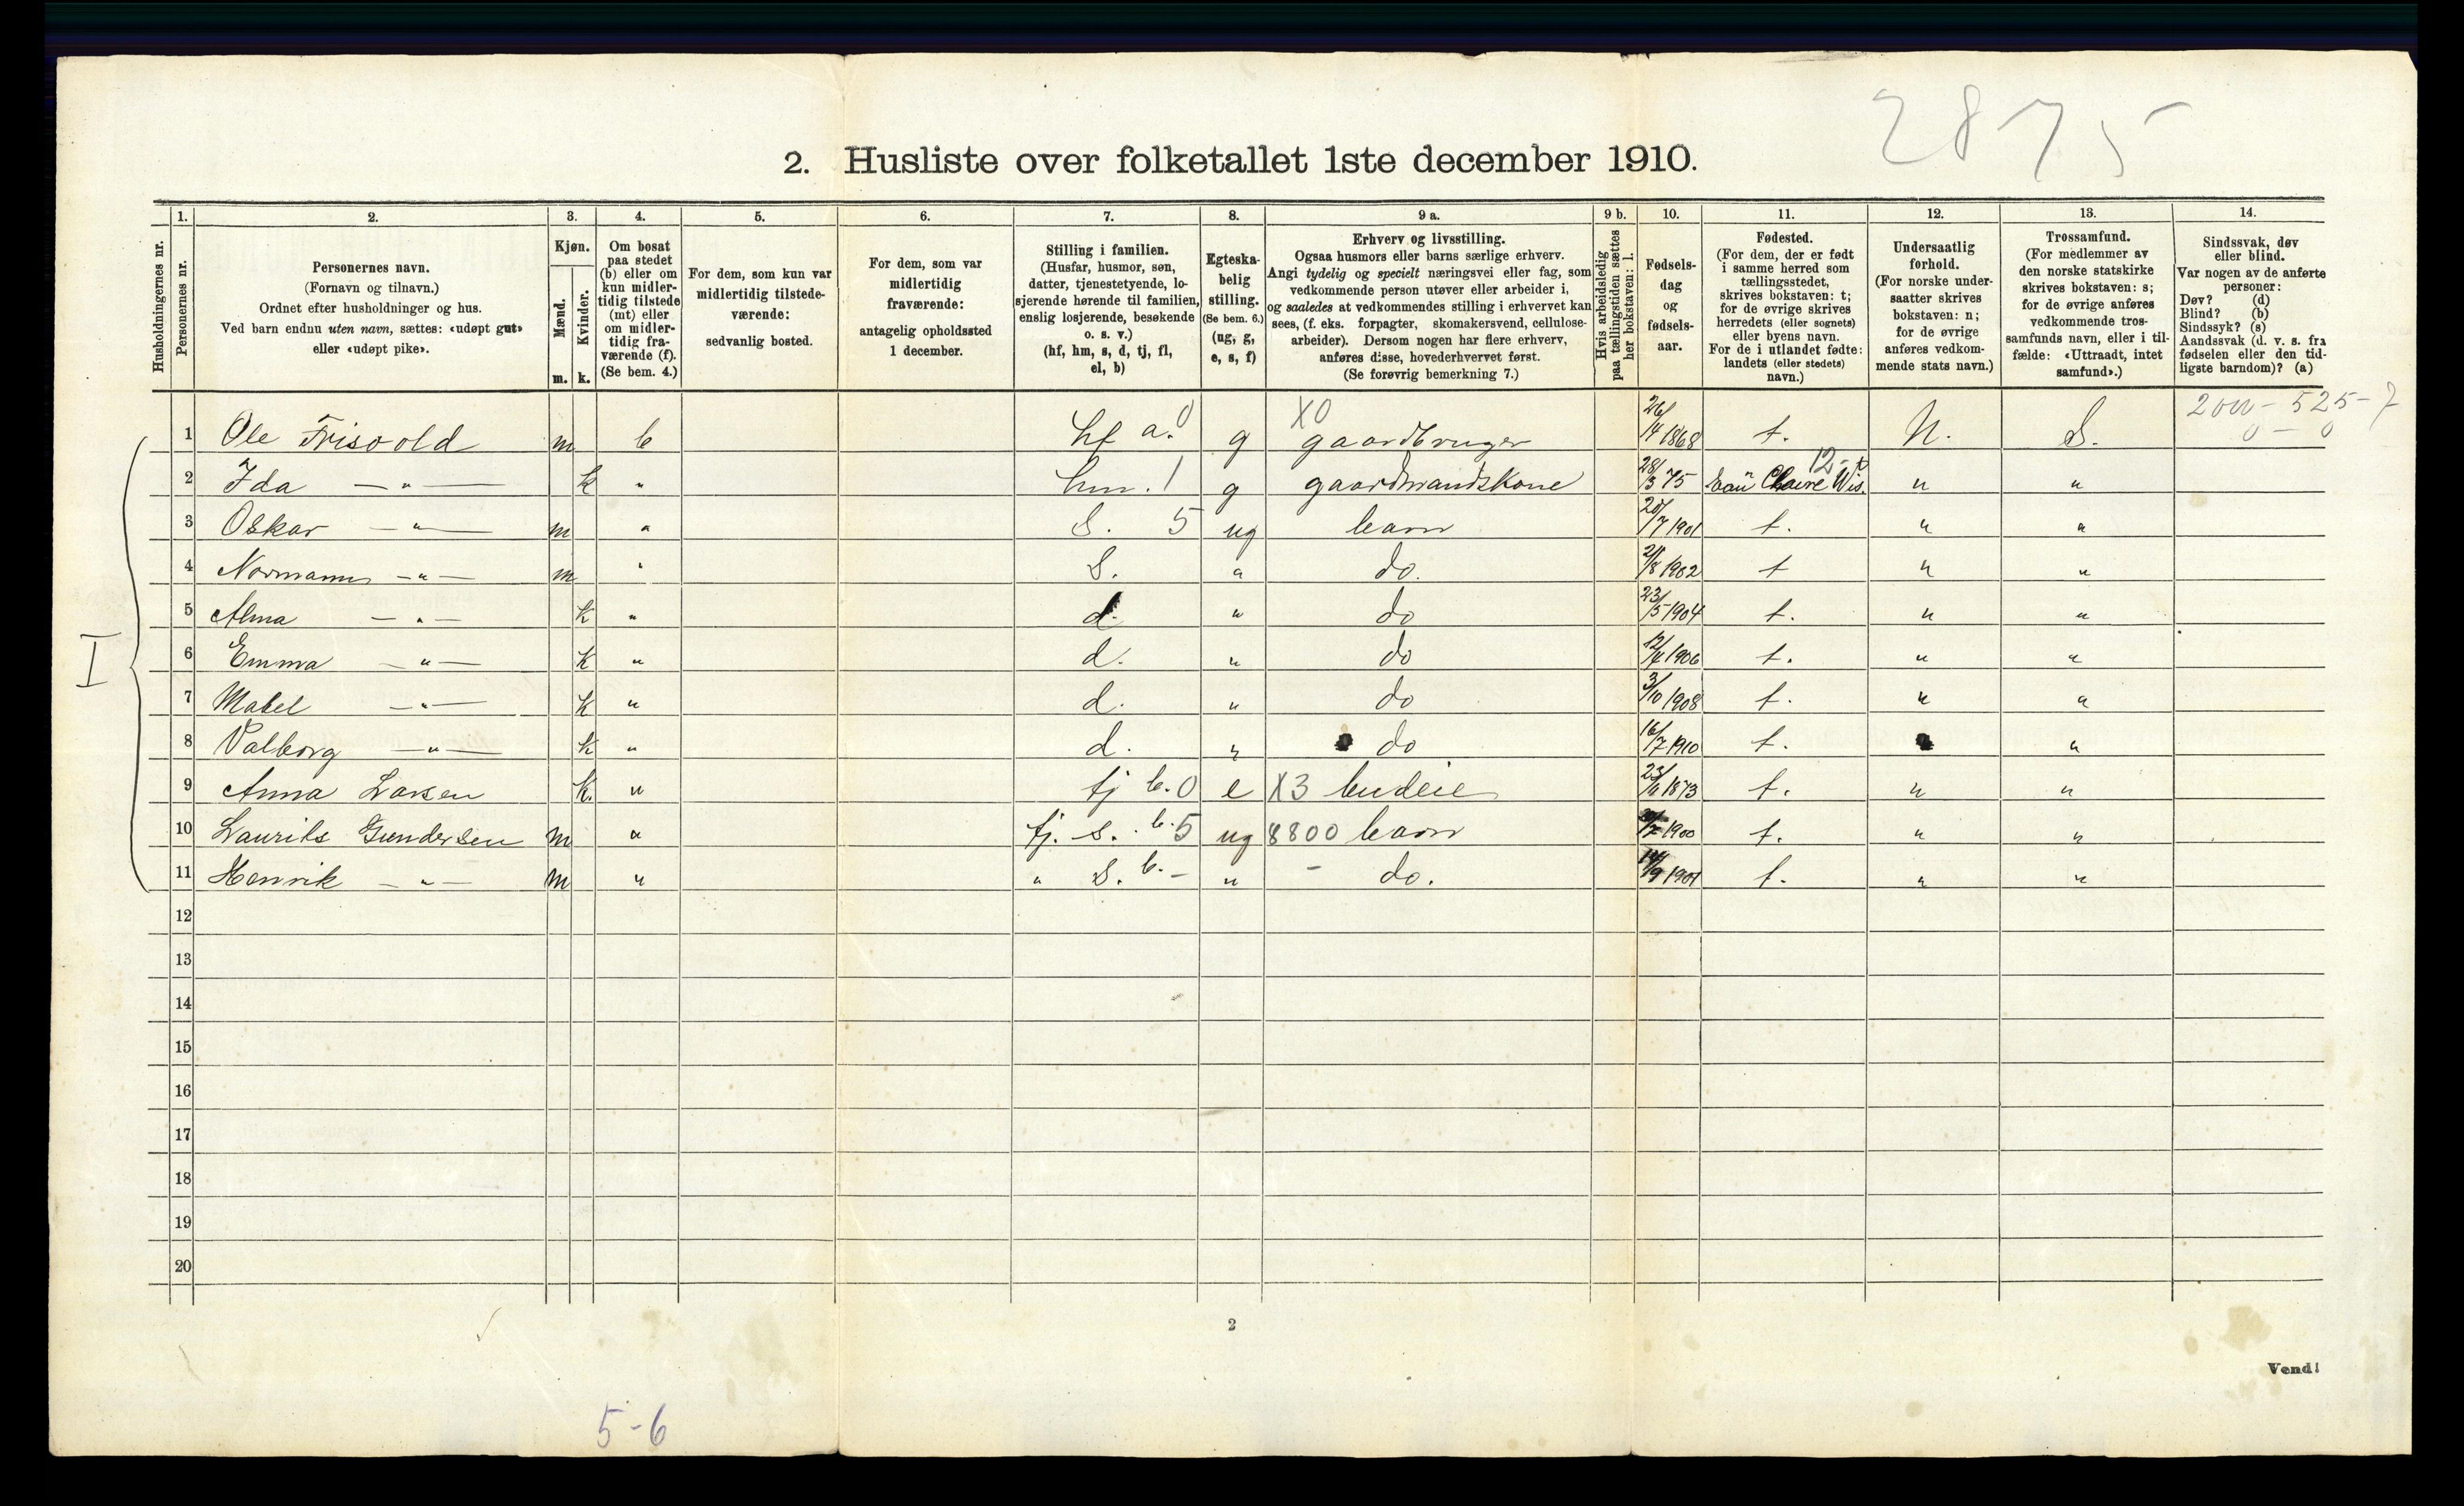 2875
2. Husliste over folketallet 1ste december 1910.
Husholdningernes nr.
1. 2. 3. 4. 5. 6. 7. 8. 9 a. 9 b. 10. 11. 12. 13. 14.
Personernes nr.
Personernes navn.
(Fornavn og tilnavn.)
Ordnet efter husholdninger og hus.
Ved barn endnu uten navn, sættes: «udøpt gut»
eller «udøpt pike».
Kjøn.
Mænd.
m.
Kvinder.
k.
Om bosat
paa stedet
(b) eller om
kun midler-
tidig tilstede
(mt) eller
om midler-
tidig fra-
værende (f).
(Se bem. 4.)
For dem, som kun var
midlertidig tilstede-
værende:
sedvanlig bosted.
For dem, som var
midlertidig
fraværende:
antagelig opholdssted
1 december.
Stilling i familien.
(Husfar, husmor, søn,
datter, tjenestetyende, lo-
sjerende hørende til familien,
enslig losjerende, besøkende
o. s. v.)
(hf, hm, s, d, tj, fl,
el, b)
Egteska-
belig
stilling.
(Se bem. 6.)
(ug, g,
e, s, f)
Erhverv og livsstilling.
Ogsaa husmors eller barns særlige erhverv.
Angi tydelig og specielt næringsvei eller fag, som
vedkommende person utøver eller arbeider i,
og saaledes at vedkommendes stilling i erhvervet kan
sees, (f. eks. forpagter, skomakersvend, cellulose-
arbeider). Dersom nogen har flere erhverv,
anføres disse, hovederhvervet først.
(Se forøvrig bemerkning 7.)
Hvis arbeidsledig
paa tællingstiden sættes
her bokstaven: l.
Fødsels-
dag
og
fødsels-
aar.
Fødested.
(For dem, der er født
i samme herred som
tællingsstedet,
skrives bokstaven: t;
for de øvrige skrives
herredets (eller sognets)
eller byens navn.
For de i utlandet fødte:
landets (eller stedets)
navn.)
Undersaatlig
forhold.
(For norske under-
saatter skrives
bokstaven: n;
for de øvrige
anføres vedkom-
mende stats navn.)
Trossamfund.
(For medlemmer av
den norske statskirke
skrives bokstaven: s;
for de øvrige anføres
vedkommende tros-
samfunds navn, eller i til-
fælde: «Uttraadt, intet
samfund».)
Sindssvak, døv
eller blind.
Var nogen av de anførte
personer:
Døv? (d)
Blind? (b)
Sindssyk? (s)
Aandssvak (d. v. s. fra
fødselen eller den tid-
ligste barndom)? (a)
I
1 Ole Frisvold m b hf a. 0 g X0 gaardbruger 26/14 1868 t. N. S. 525-7 0 - 0
2 Ida - " - k " hm. 1 g gaardmandskone 28/3 75 Eau Claire Wis. 12 " "
3 Oskar - " - m " S. 5 ug barn 20/7 1901 t. " "
4 Normann - " - m " S. " do. 2/8 1902 t " "
5 Alma - " - k " d. " do 23/5 1904 t. " "
6 Emma - " - k " d. " do 1906 t. " "
7 Mabel - " - k " d. " do 3/10 1908 t. " "
8 Valborg - " - k " d. " do 16/7 1910 t. "
9 Anna Larsen k. " tj b. 0 e X3 budeie 1873 t. " "
10 Laurits Gundersen m " tj. s. b. 5 ug 8800 barn 1900 t. " "
11 Henrik - " - m " " s. b. - " - do. 14/9 1901 t. " "
12
13
14
15
16
17
18
19
20
2
Vend!
5-6